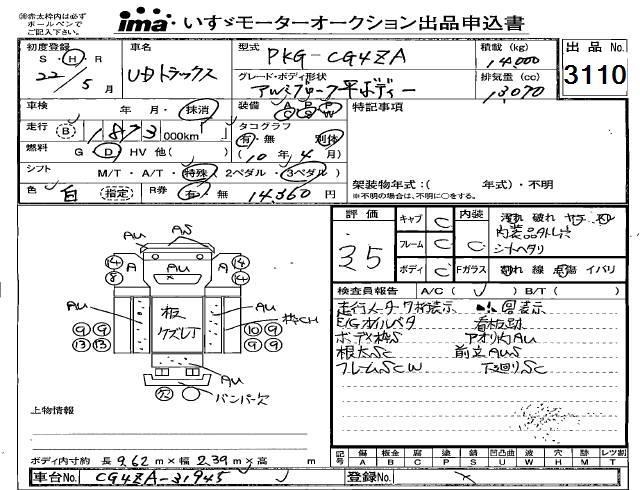 ㊟赤太枠内は必ず
ボールペンで
ご記入下さい。
ima いすゞモーターオークション出品申込書
初度登録 S・H・R 22/5月
車名 UDトラックス
型式 PKG-CG4ZA
積載量 (kg) 14,000
グレード・ボディ形状 アルミブロック平ボディー
排気量 (cc) 13,070
出品No. 3110
車検 年 月・抹消
装備
特記事項
走行 1873,000km
タコグラフ 有・無 別体
燃料 G・D・HV 他( )
(10年4月)
シフト M/T・A/T・特殊 2ペダル・3ペダル
色 白 指定 R券 有・無 14,360円
架装物年式:( 年式)・不明
※不明の場合は、不明に○をする。
評価 3.5
キャブ C 内装 C 汚れ 破れ ヤケ
内装品外し穴
シートヘタリ
フレーム C
ボディ C Fガラス 割れ 線 点傷 イバリ
検査員報告 A/C( ) B/T( )
走行メーター7桁表示
E/Gオイルベタ 看板跡
ボデー枠S アオリ穴AU
根太SC 前立AUS
フレームSCW 下回りSC
AU AS
14 A AU A 14
8 14
AU AU
板
クズレT
枠CH
9 9 10 9
13 13 9 9
AU
欠 バンパー欠
上物情報
ボディ内寸約 長9.62m×幅2.39m×高 m
記号 傷A 板金B 腐C 塗P 錆S 凹凸曲U 波W 穴H 跡M レツ割T
車台No. CG4ZA-31945
登録No.